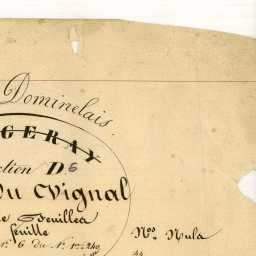 Dominelais.
GERAY
ction D6
Du Vignal
e Feuille
feuille
N.º 6 du N.º
N.os Nula